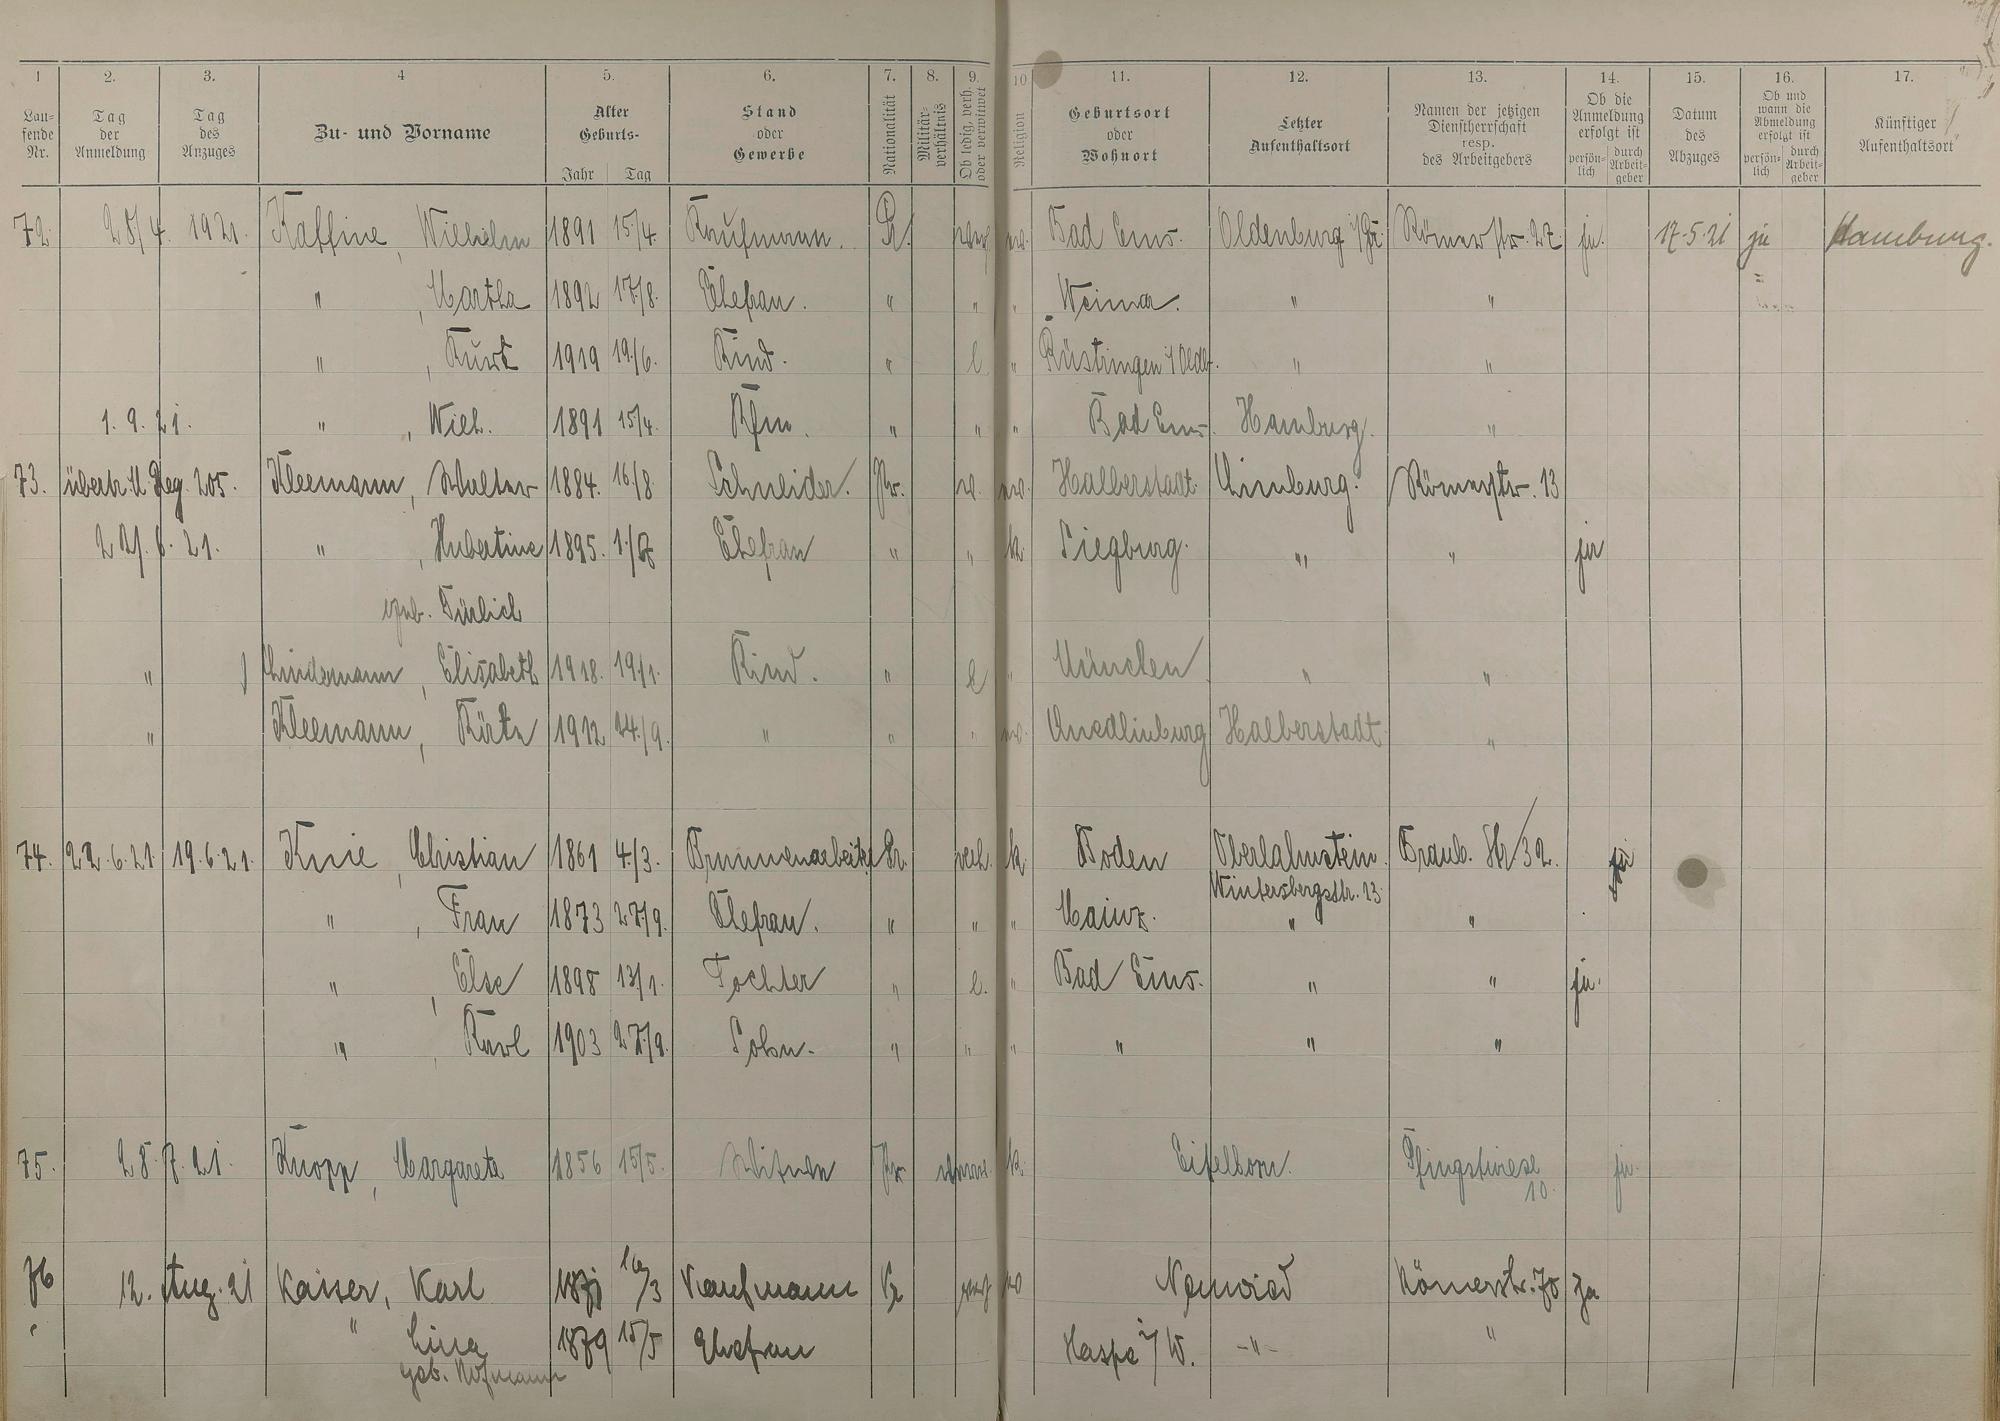 1 2. 3. 4 5. 6. 7. 8. 9. 10 11. 12. 13. 14. 15. 16. 17.
Lau-
fende
Nr.
Tag
der
Anmeldung
Tag
des
Anzuges
Zu- und Vorname
Alter
Geburts-
Jahr Tag
Stand
oder
Gewerbe
Nationalität
Militär-
verhältnis
Ob ledig, verh.
oder verwitwet
Religion
Geburtsort
oder
Wohnort
Letzter
Aufenthaltsort
Namen der jetzigen
Dienstherrschaft
resp.
des Arbeitgebers
Ob die
Anmeldung
erfolgt ist
persön-
lich
durch
Arbeit-
geber
Datum
des
Abzuges
Ob und
wann die
Abmeldung
erfolgt ist
persön-
lich
durch
Arbeit-
geber
Künftiger
Aufenthaltsort
72. 28/4. 1921. Kaffine, Wilhelm 1891 15/4. Kaufmann. Pr. verh. ev. Bad Ems. Oldenburg Römerstr. 27 ja. 17.5.21 ja Hamburg.
" , Martha 1892 17/8. Ehefrau. " " " Weimar. " "
" , Kurt 1919 19/6. Kind. " l. " Rüstringen i/Oldb. " "
1. 9. 21. " , Wilh. 1891 15/4. Kfm. " " " Bad Ems. Hamburg. "
73. übertr. Reg. 205. Kleemann, Walter 1884. 16/8 Schneider. Pr. v. ev. Halberstadt. Limburg. Römerstr. 13
21. 6. 21. " , Hubertine 1895. 1./ Ehefrau " " k. Siegburg. " " ja
geb. Türlich
" Lindemann, Elisabeth 1918. 19/1. Kind. " l " München " "
" Kleemann, Käte 1912 14./9. " " " ev. Quedlinburg Halberstadt "
74. 22.6.21. 19.6.21. Knie, Christian 1861 4/3. Brunnenarbeiter Pr. verh. k. Boden Oberlahnstein. Graub. Str 32. ja
Wintersbergstr. 13
" , Frau 1873 27/9. Ehefrau. " " " Mainz. " "
" , Else 1898 13/1. Tochter " l. " Bad Ems. " " ja.
" , Karl 1903 27/9. Sohn. " " " " " "
75. 28. 7. 21. Knopp, Margareta 1856 15/5. Witwe Pr. k. Eitelborn. Pfingstwiese
10. ja.
76 12. Aug. 21 Kaiser, Karl 1871 16/3 Kaufmann Pr verh ev Neuwied Römerstr. 70 Ja
" " Lina 1879 15/5 Ehefrau Haspe i/W. -"- "
geb. Hofmann